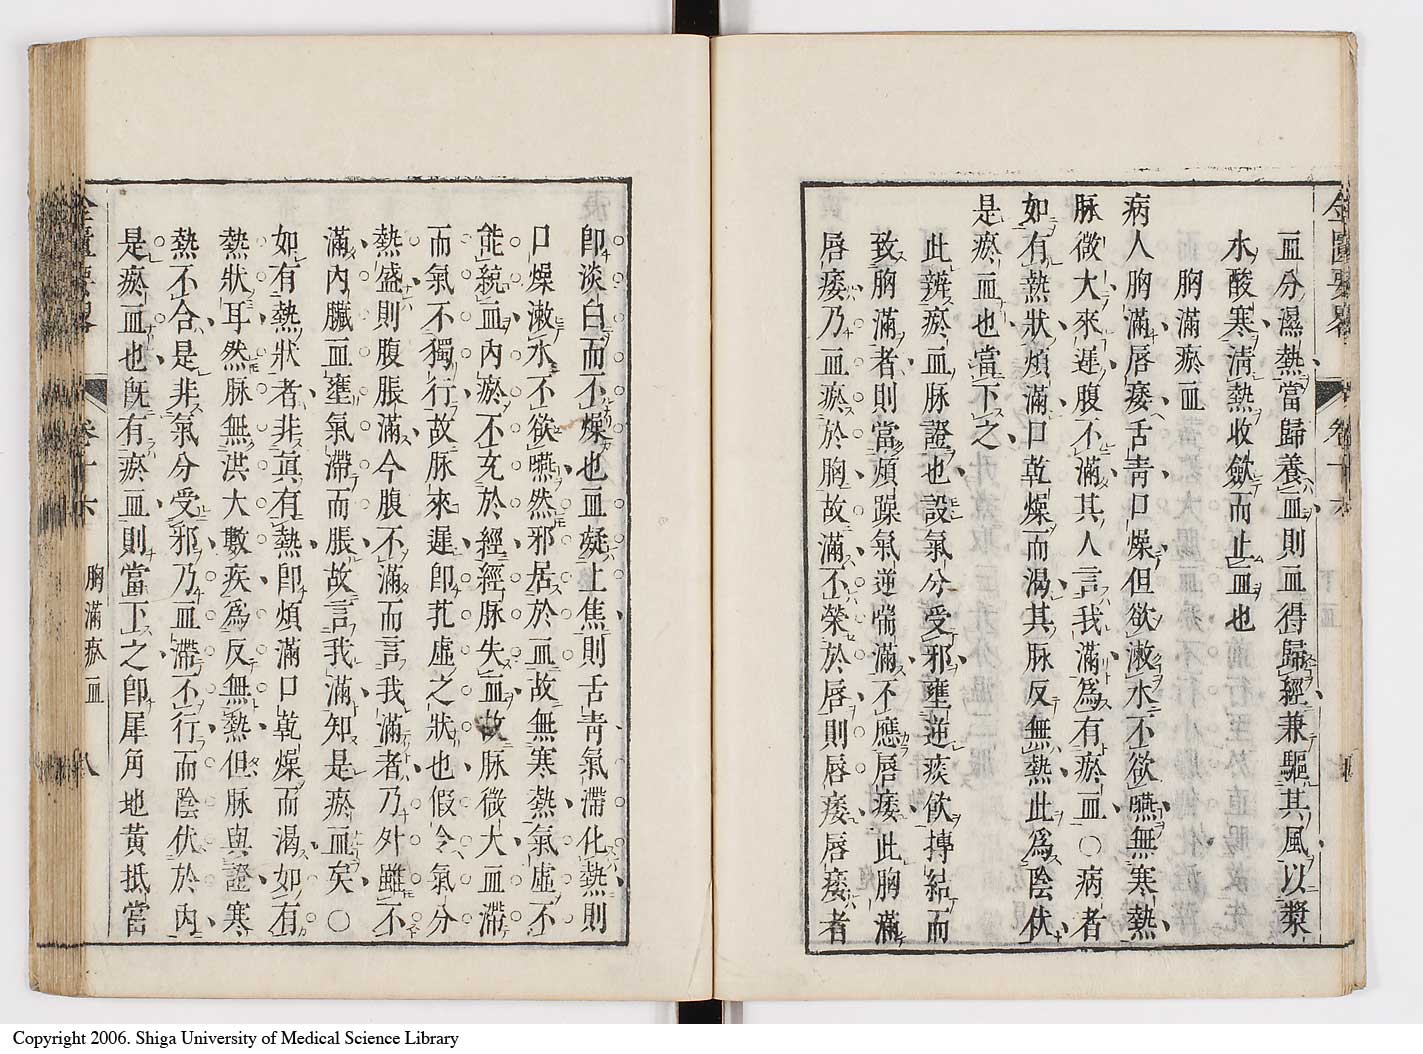 金匱要畧 卷十六
血分濕熱當歸養血則血得歸經兼驅其風以漿
水酸寒淸熱收斂而止血也
胸滿瘀血
病人胸滿唇痿舌青口燥但欲漱水不欲嚥無寒熱
脉微大來遲腹不滿其人言我滿爲有瘀血○病者
如有熱狀煩滿口乾燥而渴其脉反無熱此爲陰伏
是瘀血也當下之
此辨瘀血脉證也設氣分受邪壅逆痰飲摶結而
致胸滿者則當煩躁氣逆喘滿不應唇痿此胸滿
唇痿乃血瘀於胸故滿不榮於唇則唇痿唇痿者
卽淡白而不燥也血凝上焦則舌青氣滯化熱則
口燥漱水不欲嚥然邪居於血故無寒熱氣虛不
能統血內瘀不充於經經脉失血故脉微大血滯
而氣不獨行故脉來遲卽芤虛之狀也假令氣分
熱盛則腹脹滿今腹不滿而言我滿者乃外雖不
滿內臟血壅氣滯而脹故言我滿知是瘀血矣○
如有熱狀者非眞有熱卽煩滿口乾燥而渴如有
熱狀耳然脉無洪大數疾爲反無熱但脉與證寒
熱不合是非氣分受邪乃血滯不行而陰伏於內
是瘀血也旣有瘀血則當下之卽犀角地黃抵當
金匱要畧 卷十六 胸滿瘀血 八
Copyright 2006. Shiga University of Medical Science Library